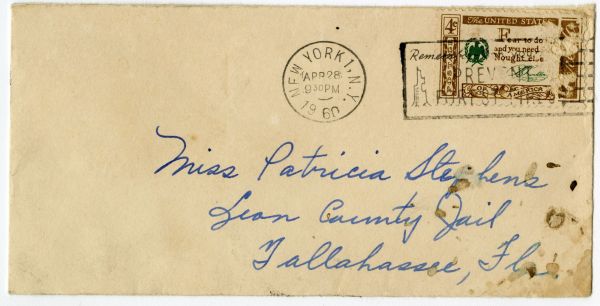 NEW YORK 1, N.Y.
APR 28
9 30 PM
1960
4¢
The UNITED STATES
Fear to do ill
and you need
Nought else
OF AMERICA
PREVENT
Miss Patricia Stephens
Leon County Jail
Tallahassee, Fla.